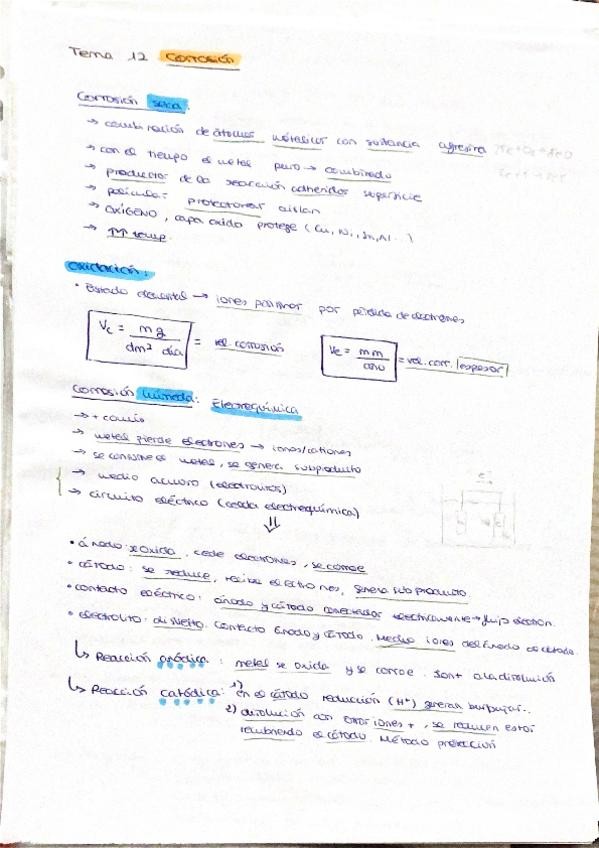 Tema 12 Corrosión
Corrosión seca:
→ combinación de átomos metálicos con sustancia agresiva
→ con el tiempo el metal puro → combinado
→ productos de la reacción adheridos superficie
→ películas: protectoras aislan
→ OXÍGENO, capa oxido protege (Cu, Ni, Sn, Al..)
→ ↑↑ temp.
Oxidación:
• Estado elemental → iones positivos por pérdida de electrones
Vc = mg / dm² día = vel. corrosión
Vc = mm / año = vel. corr. espesor
Corrosión húmeda: Electroquímica
→ + común
→ metal pierde electrones → iones/cationes
→ se consume el metal, se genera subproducto
→ medio acuoso (electrolitos)
→ circuito eléctrico (celda electroquímica)
⇓
• ánodo: se oxida, cede electrones, se corroe
• cátodo: se reduce, recibe electrones, genera subproducto.
• contacto eléctrico: ánodo y cátodo conectados eléctricamente → flujo electron.
• electrolito: disuelto. Contacto ánodo y cátodo. Medio iones del ánodo al cátodo.
↳ Reacción anódica: metal se oxida y se corroe. Son+ a la disolución
↳ Reacción catódica: 1) en el cátodo reducción (H⁺) generan burbujas..
2) disolución con otros iones +, se reducen estos
recubriendo el cátodo. Método protección